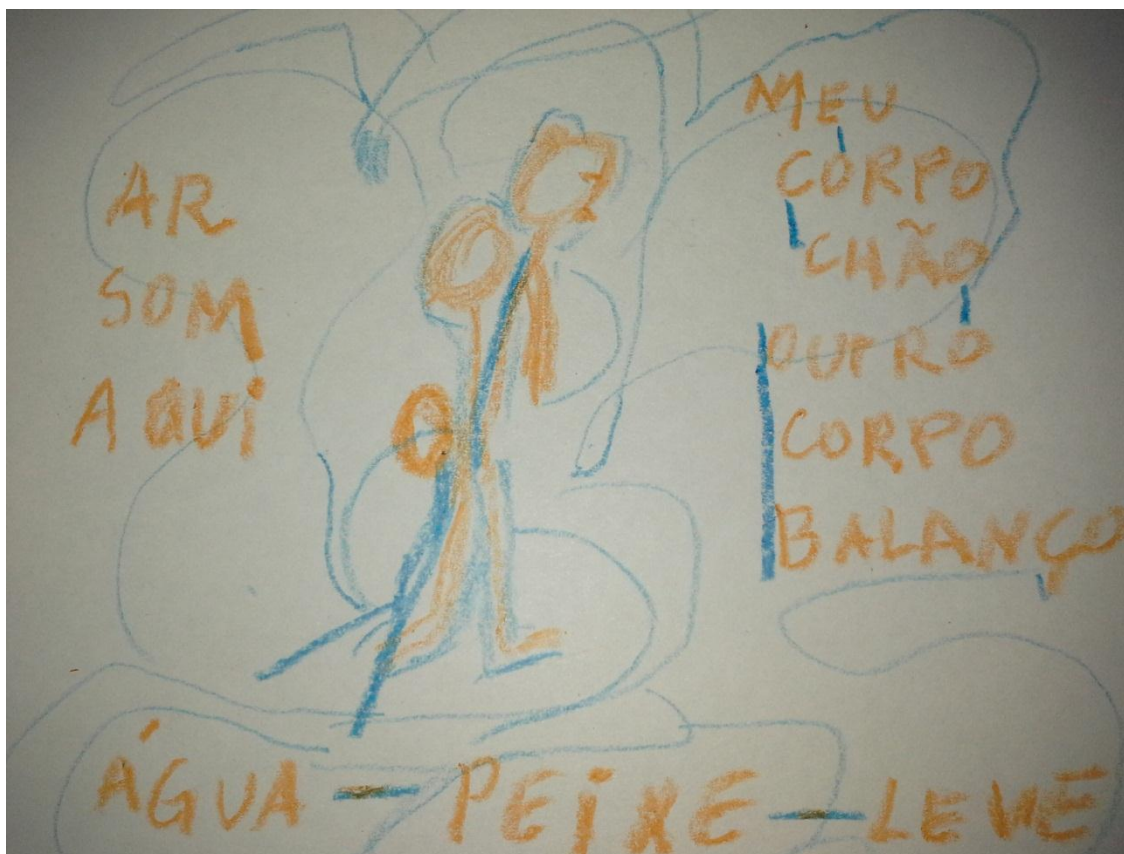 AR
SOM
AQUI
MEU
CORPO
CHÃO
OUTRO
CORPO
BALANÇO
ÁGUA — PEIXE — LEVE